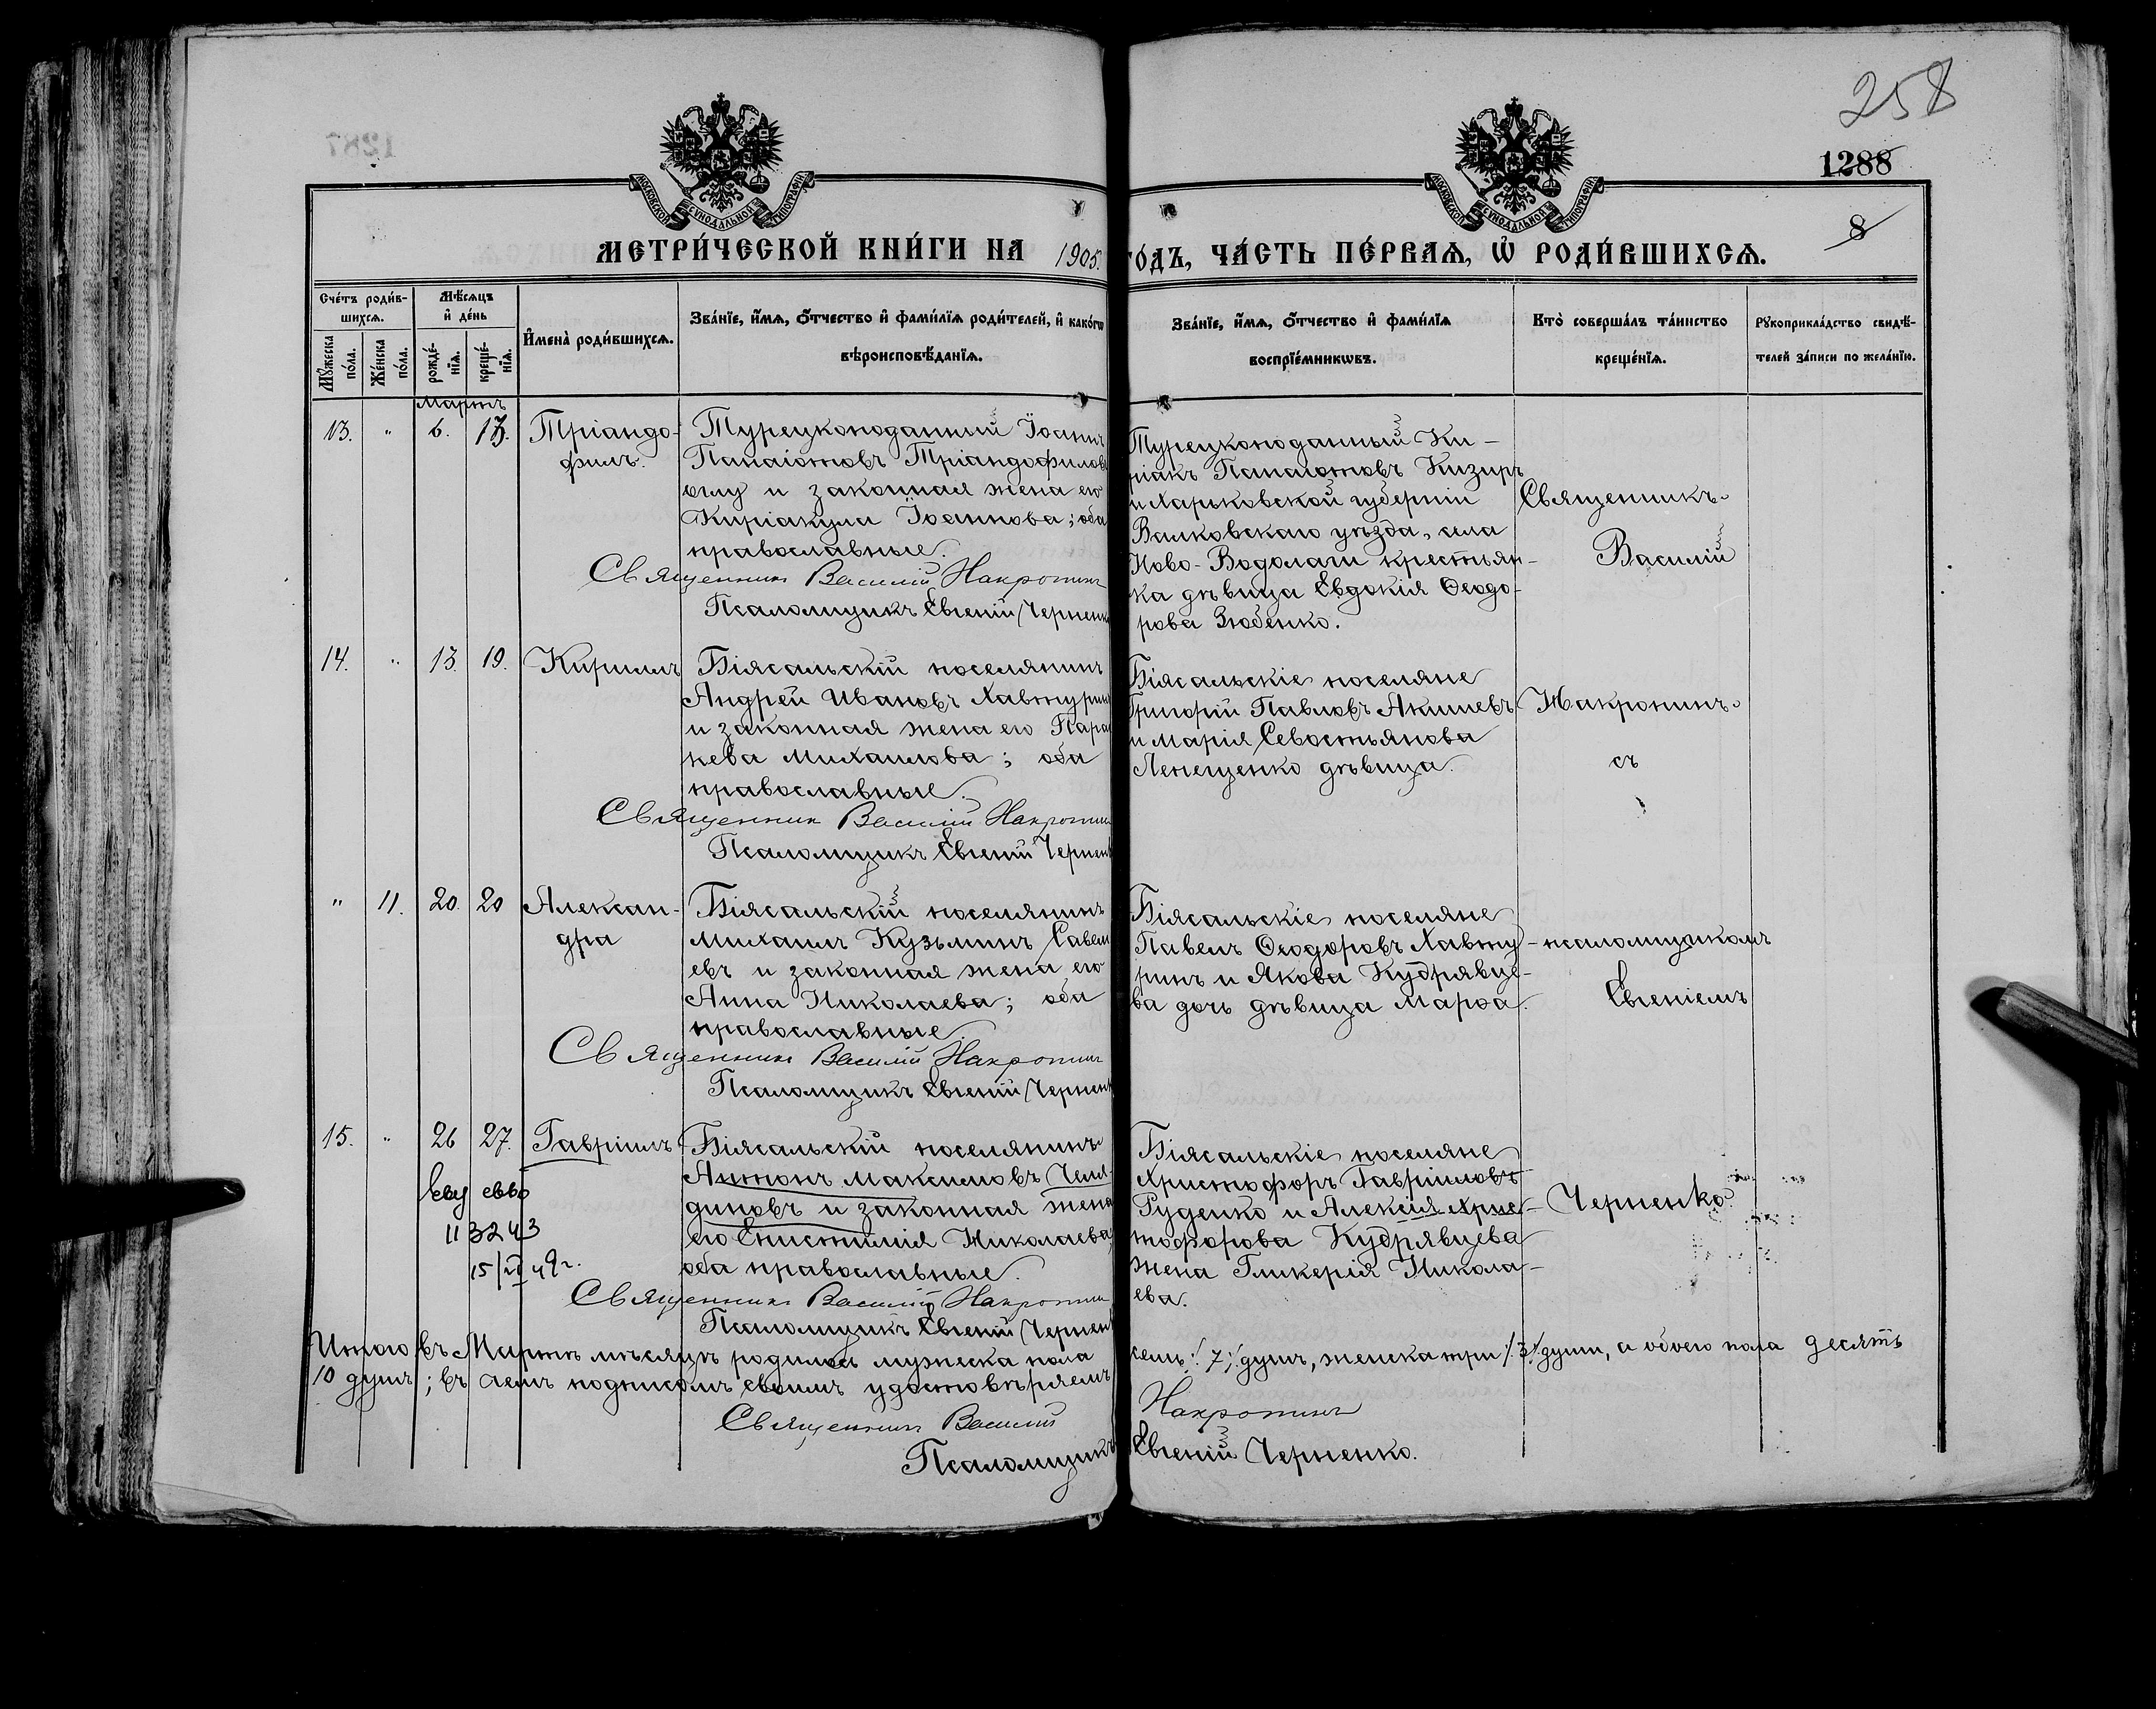 258
1288
8
МОСКОВСКОЙ СѴНОДАЛЬНОЙ ТИПОГРАФІИ
МОСКОВСКОЙ СѴНОДАЛЬНОЙ ТИПОГРАФІИ
МЕТРИ́ЧЕСКОЙ КНИ́ГИ НА 1905. ГО́ДЪ, ЧА́СТЬ ПЕ́РВАѦ, Ѡ҆ РОДИ́ВШИХСѦ.
Сче́тъ роди́в-
шихсѧ.
Мꙋ́жеска по́ла.
Же́нска по́ла.
Мѣ́сѧцъ
и҆ де́нь
рожде́-
нїѧ.
креще́-
нїѧ.
И҆мена̀ роди́вшихсѧ.
Зва́нїе, и҆́мѧ, ѻ҆́тчество и҆ фами́лїѧ роди́телей, и҆ како́гѡ
вѣроисповѣ́данїѧ.
Зва́нїе, и҆́мѧ, ѻ҆́тчество и҆ фами́лїѧ
воспрїе́мникѡвъ.
Кто̀ соверша́лъ та́инство
креще́нїѧ.
Рꙋкоприкла́дство свидѣ́-
телей за́писи по жела́нїю.
Мартъ
13. " 6. 13. Тріандо-
филъ.
Турецкоподанный Іоаннъ
Папаіоновъ Тріандофилов
оглу и законная жена его
Киріакула Іоаннова; оба
православные.
Священник Василий Накропин
Псаломщикъ Евгеній Черненк
Турецкоподанный Ки-
ріакъ Папаіоновъ Кизиръ
и Харьковской губерніи
Валковскаго уѣзда, села
Ново-Водолаги крестьян-
ка дѣвица Евдокія Ѳеодо-
рова Зюбенко.
Священникъ
Василій
14. " 13. 19. Кириллъ
Біясальскій поселянинъ
Андрей Ивановъ Хавтури
и законная жена его Пара
кева Михаилова; оба
православные.
Священник Василій Накропин
Псаломщикъ Евгеній Чернен
Біясальскіе поселяне
Григорій Павловъ Акишевъ
и Марія Севостьянова
Лепещенко дѣвица.
Накропинъ
съ
" 11. 20. 20 Алексан-
дра
Біясальскій поселянинъ
Михаилъ Кузьминъ Савел
евъ и законная жена его
Анна Николаева; оба
православные.
Священник Василій Накропин
Псаломщикъ Евгеній Чернен
Біясальскіе поселяне
Павелъ Ѳеодоровъ Хавту-
ринъ и Якова Кудрявце-
ва дочь дѣвица Марѳа.
псаломщикомъ
Евгеніемъ
15. " 26 27. Гавріилъ
113243
15/II 49г.
Біясальскій поселянинъ
Антонъ Максимовъ Челя
диновъ и законная жена
его Епистимія Николаева
оба православные.
Священник Василий Накропин
Псаломщикъ Евгеній Чернен
Біясальскіе поселяне
Христофоръ Гавріиловъ
Руденко и Алексія Хрис-
тофорова Кудрявцева
жена Гликерія Никола-
ева.
Черненко.
Итого въ Мартѣ мѣсяцѣ родилось мужеска пола семь /7/ душъ, женска три /3/ души, а обоего пола десять
10 душъ; въ чемъ подписомъ своимъ удостовѣряемъ
Священник Василий Накропинъ
Псаломщикъ Евгеній Черненко.